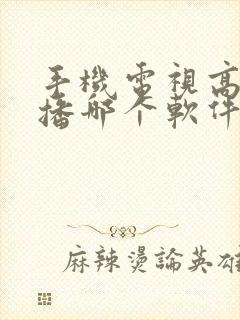 手機電視高
播哪个軟件
麻辣燙論英雄